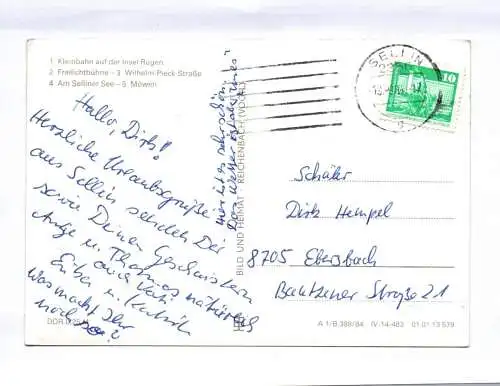 1 Kleinbahn auf der Insel Rügen
2 Freilichtbühne – 3 Wilhelm-Pieck-Straße
4 Am Selliner See – 5 Möwen
Hallo, Dirk!
Herzliche Urlaubsgrüße
aus Sellin senden Dir
sowie Deinen Geschwistern
Antje u. Thomas natürlich
auch Kati
Erika u.
Was macht Ihr
noch so?
Hier ist es sehr schön
Das Wetter ist
BILD UND HEIMAT REICHENBACH (VOGTL)
SELLIN
10
Schüler
Dirk Hempel
8705 Ebersbach
Bautzener Straße 21
A 1/B 389/84 IV-14-483 01 01 13 579